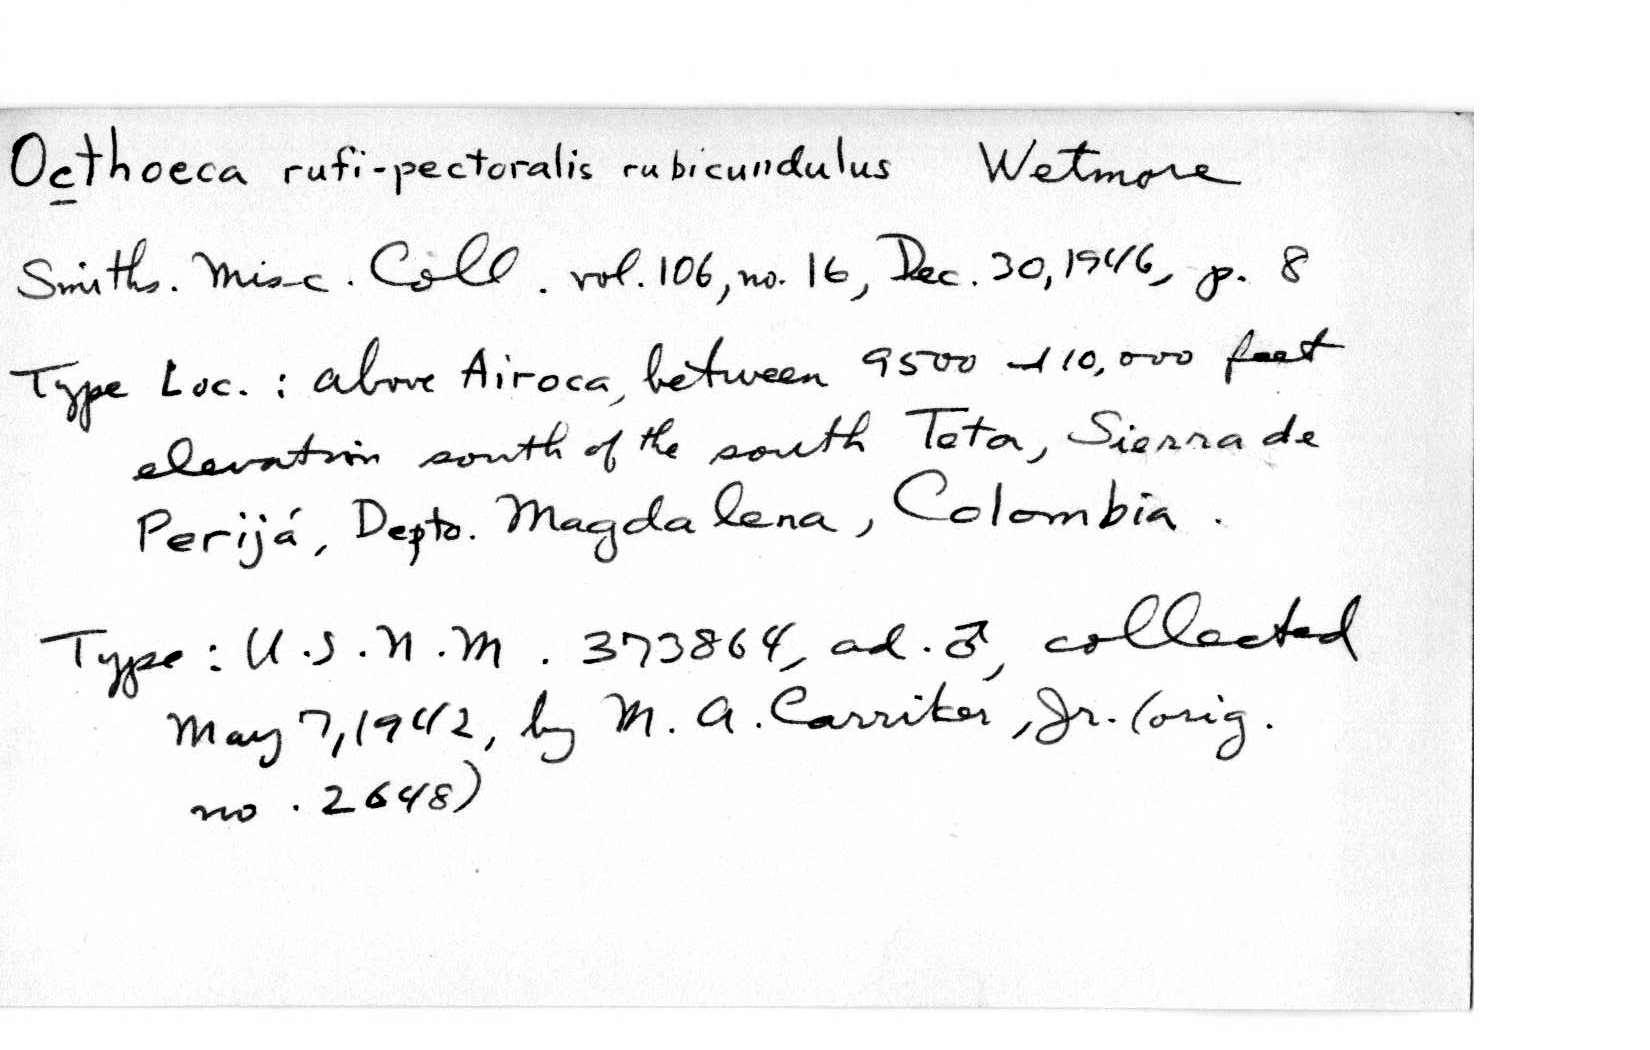 Octhoeca rufi-pectoralis rubicundulus Wetmore
Smiths. Misc. Coll. vol. 106, no. 16, Dec. 30, 1946, p. 8
Type Loc.: above Airoca, between 9500 and 10,000 feet
elevation south of the south Teta, Sierra de
Perijá, Depto. Magdalena, Colombia.
Type: U.S.N.M. 373864, ad. ♂, collected
May 7, 1942, by M. A. Carriker, Jr. (orig.
no. 2648)